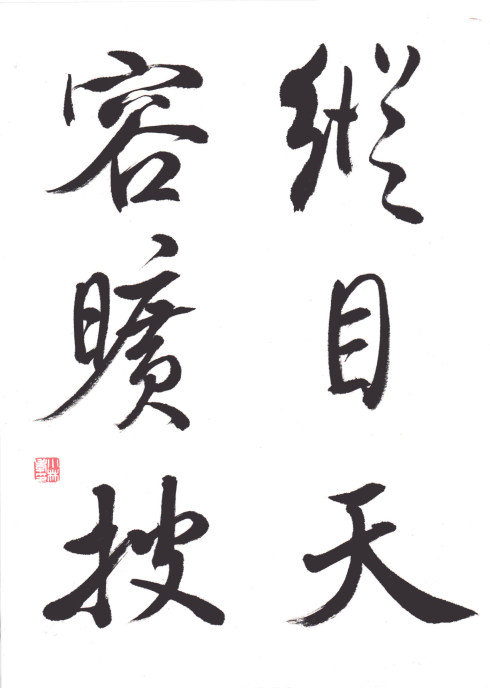 縦目天
容曠披